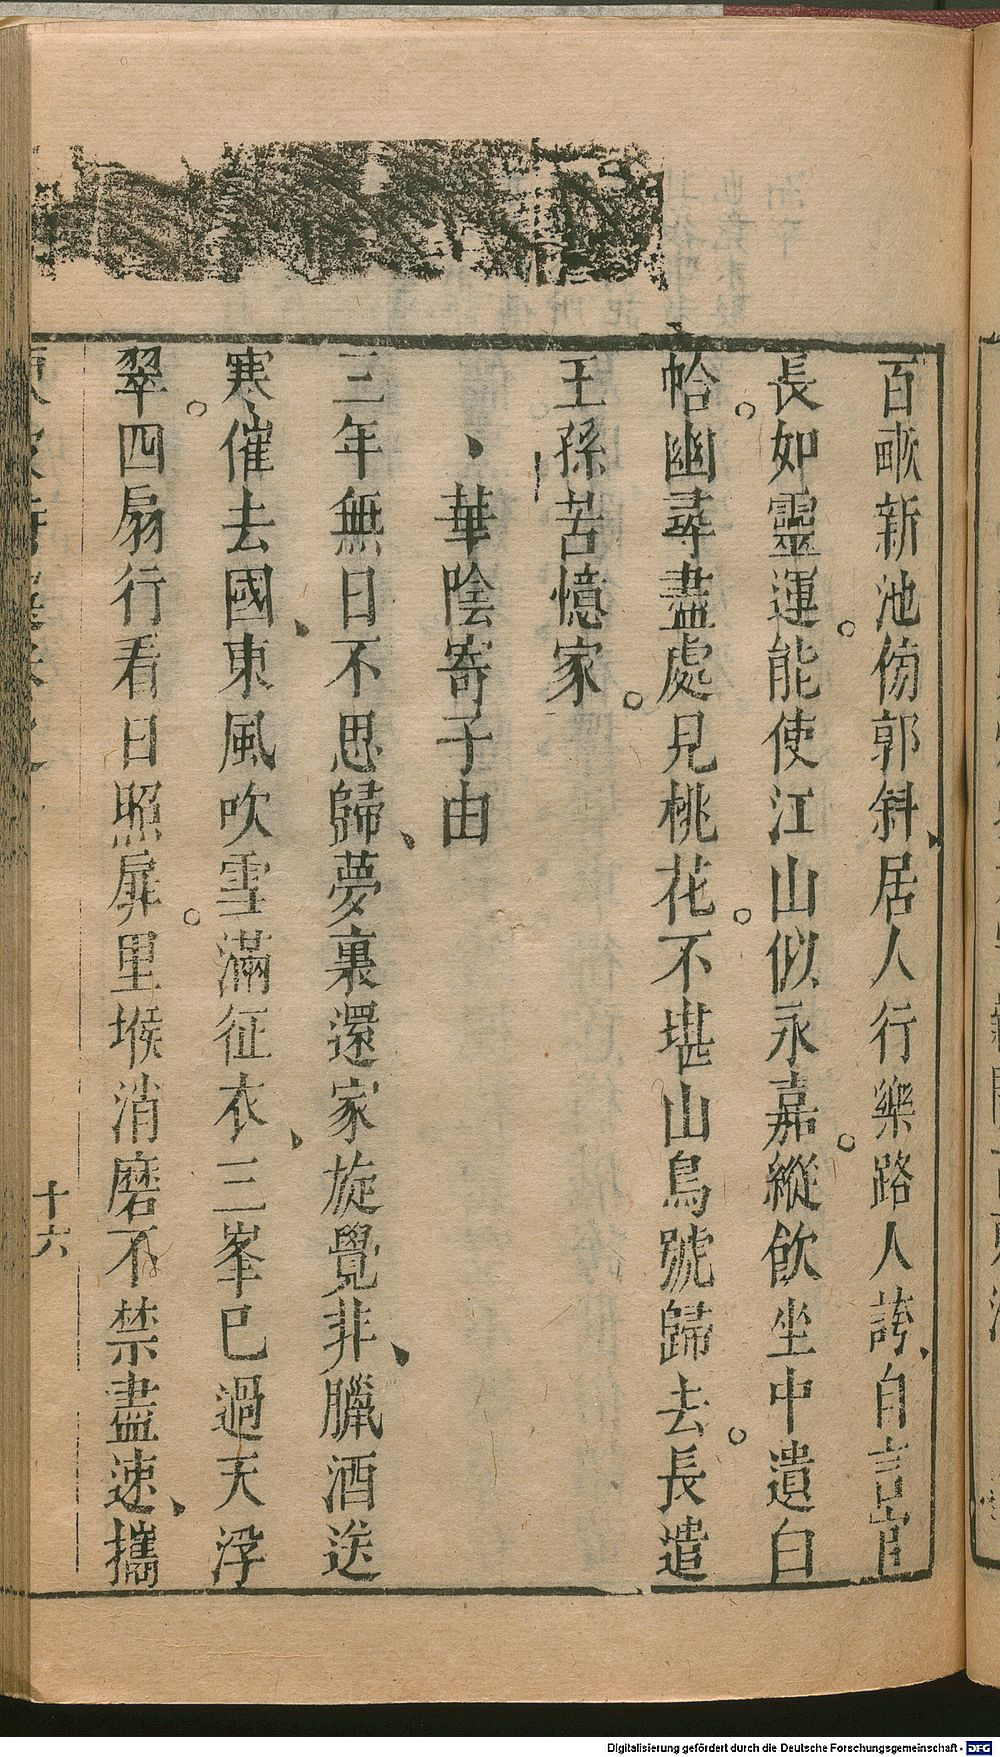 百畝新池傍郭斜居人行樂路人誇自言官
長如靈運能使江山似永嘉縱飲坐中遺白
帢幽尋盡處見桃花不堪山鳥號歸去長遣
王孫苦憶家
華陰寄子由
三年無日不思歸夢裏還家旋覺非臘酒送
寒催去國東風吹雪滿征衣三峯已過天浮
翠四扇行看日照扉里堠消磨不禁盡速攜
十六
Digitalisierung gefördert durch die Deutsche Forschungsgemeinschaft - DFG